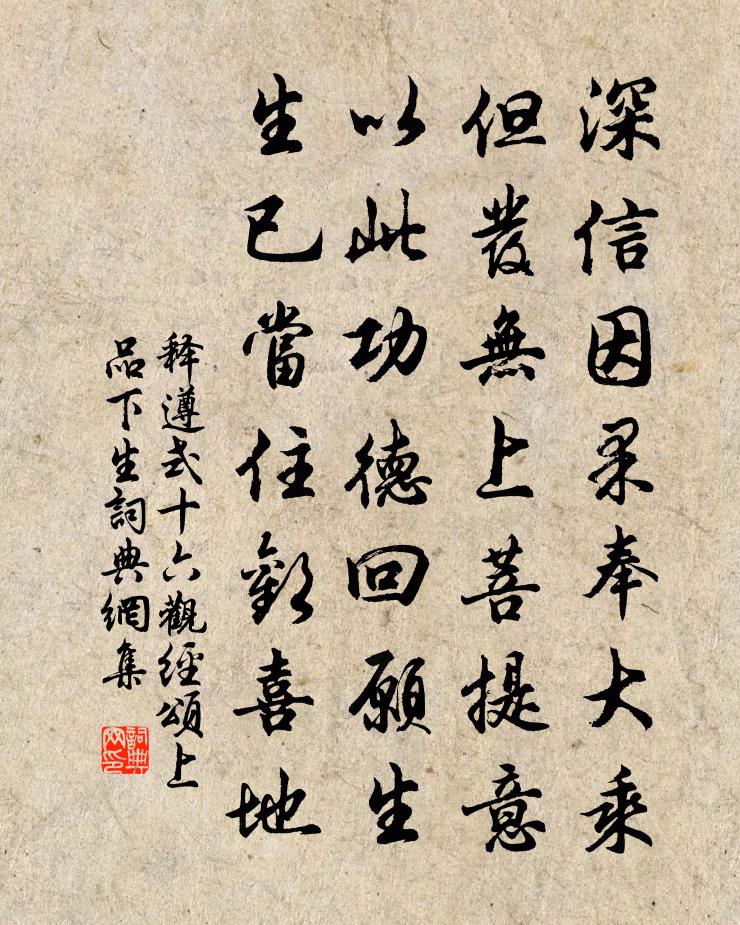 深信因果奉大乘
但發無上菩提意
以此功德回願生
生已當住歡喜地
释遵式十六觀經頌上
品下生詞典網集
詞典
网印